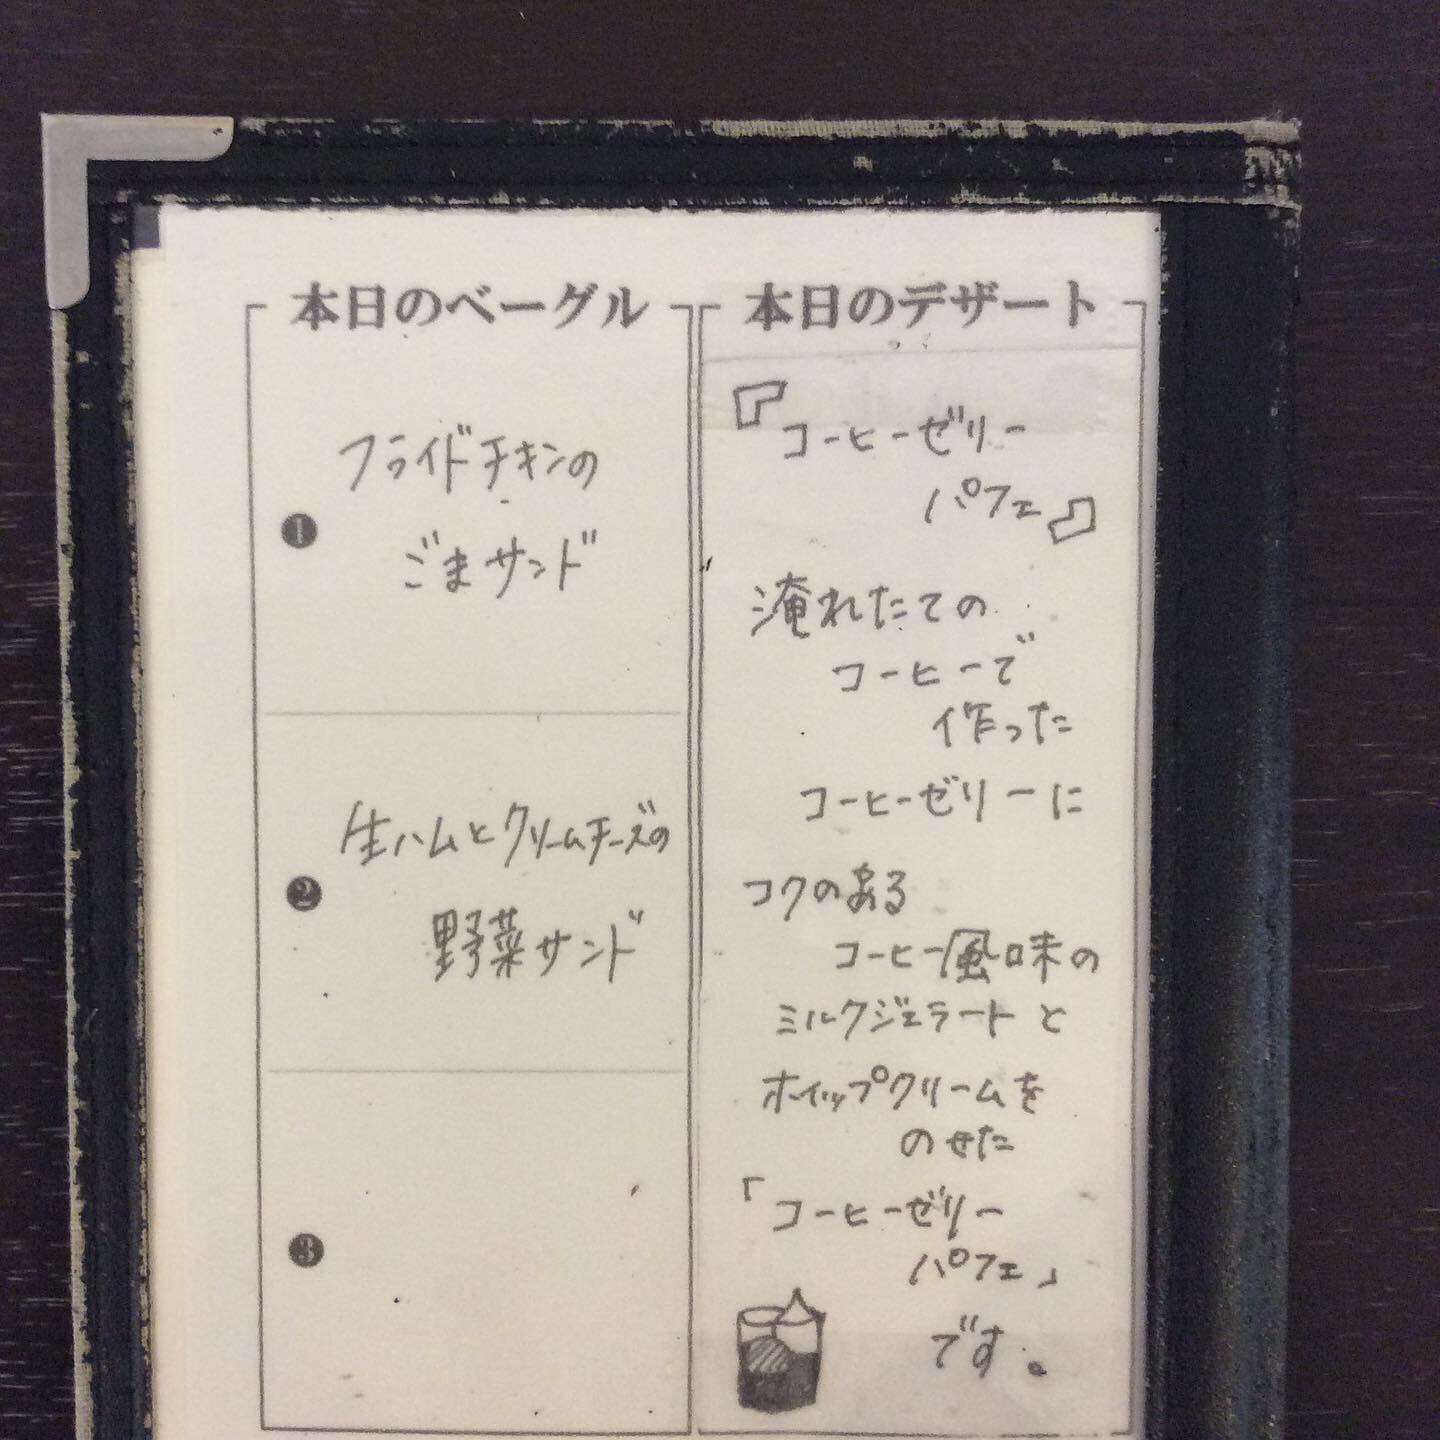 本日のベーグル
❶
フライドチキンの
ごまサンド
❷
生ハムとクリームチーズの
野菜サンド
❸
本日のデザート
『コーヒーゼリー
パフェ』
淹れたての
コーヒーで
作った
コーヒーゼリーに
コクのある
コーヒー風味の
ミルクジェラートと
ホイップクリームを
のせた
「コーヒーゼリー
パフェ」
です。